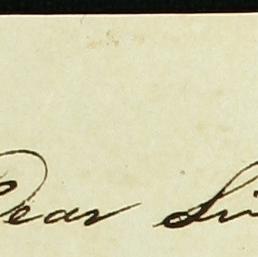 Dear Si